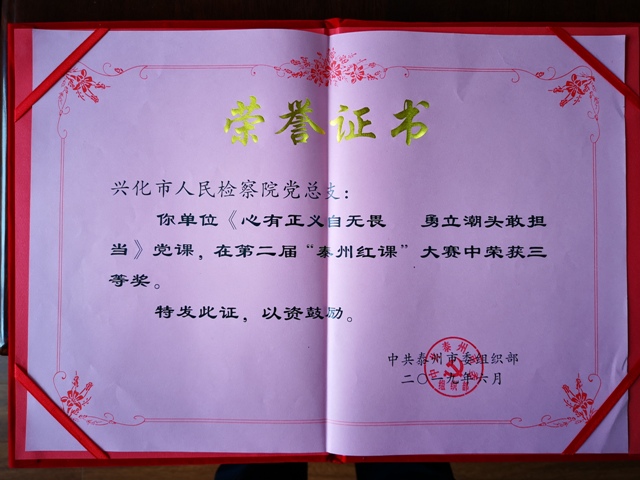 荣誉证书
兴化市人民检察院党总支：
你单位《心有正义自无畏 勇立潮头敢担
当》党课，在第二届“泰州红课”大赛中荣获三
等奖。
特发此证，以资鼓励。
中共泰州市委组织部
二〇一九年六月
中共泰州市委
组织部